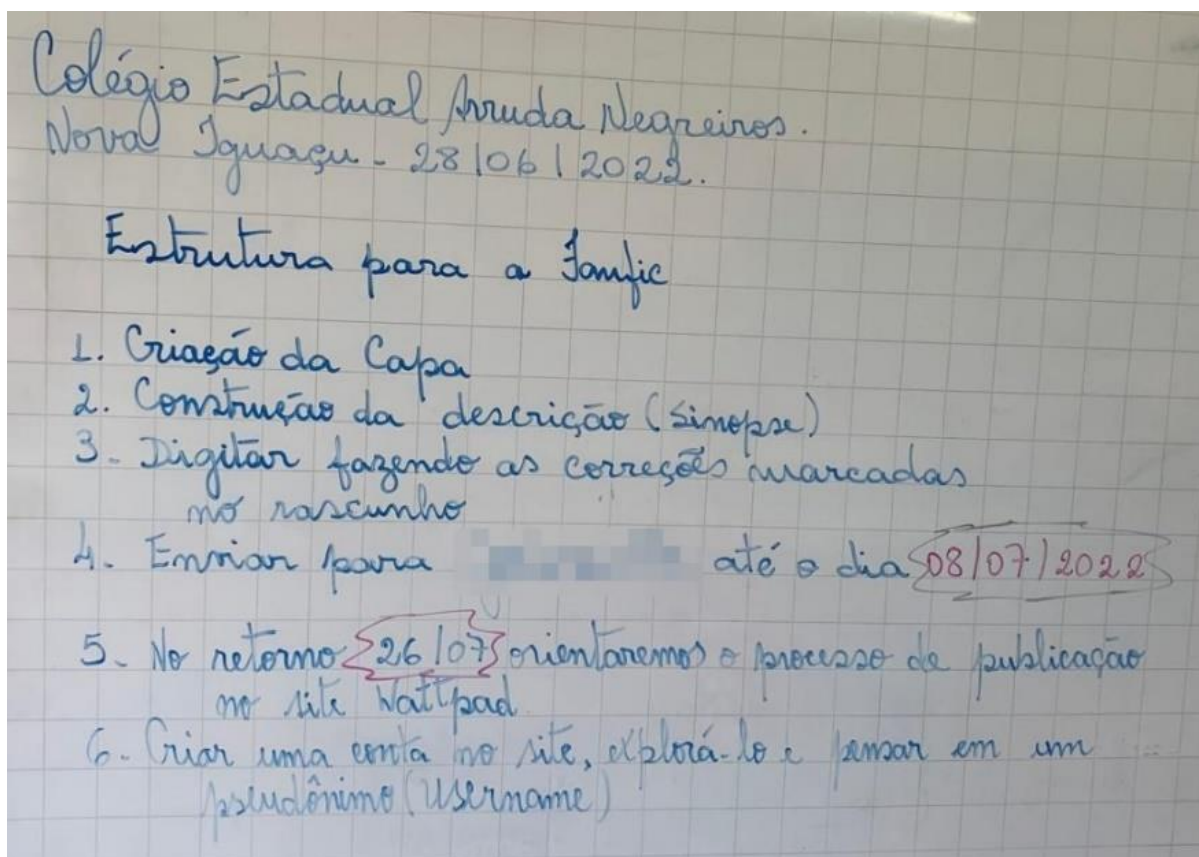 Colégio Estadual Arruda Negreiros.
Nova Iguaçu - 28/06/2022.
Estrutura para a Fanfic
1. Criação da Capa
2. Construção da descrição (Sinopse)
3- Digitar fazendo as correções marcadas
no rascunho
4. Enviar para até o dia 08/07/2022
5- No retorno 26/07 orientaremos o processo de publicação
no site Wattpad
6- Criar uma conta no site, explorá-lo e pensar em um
pseudônimo (Username)